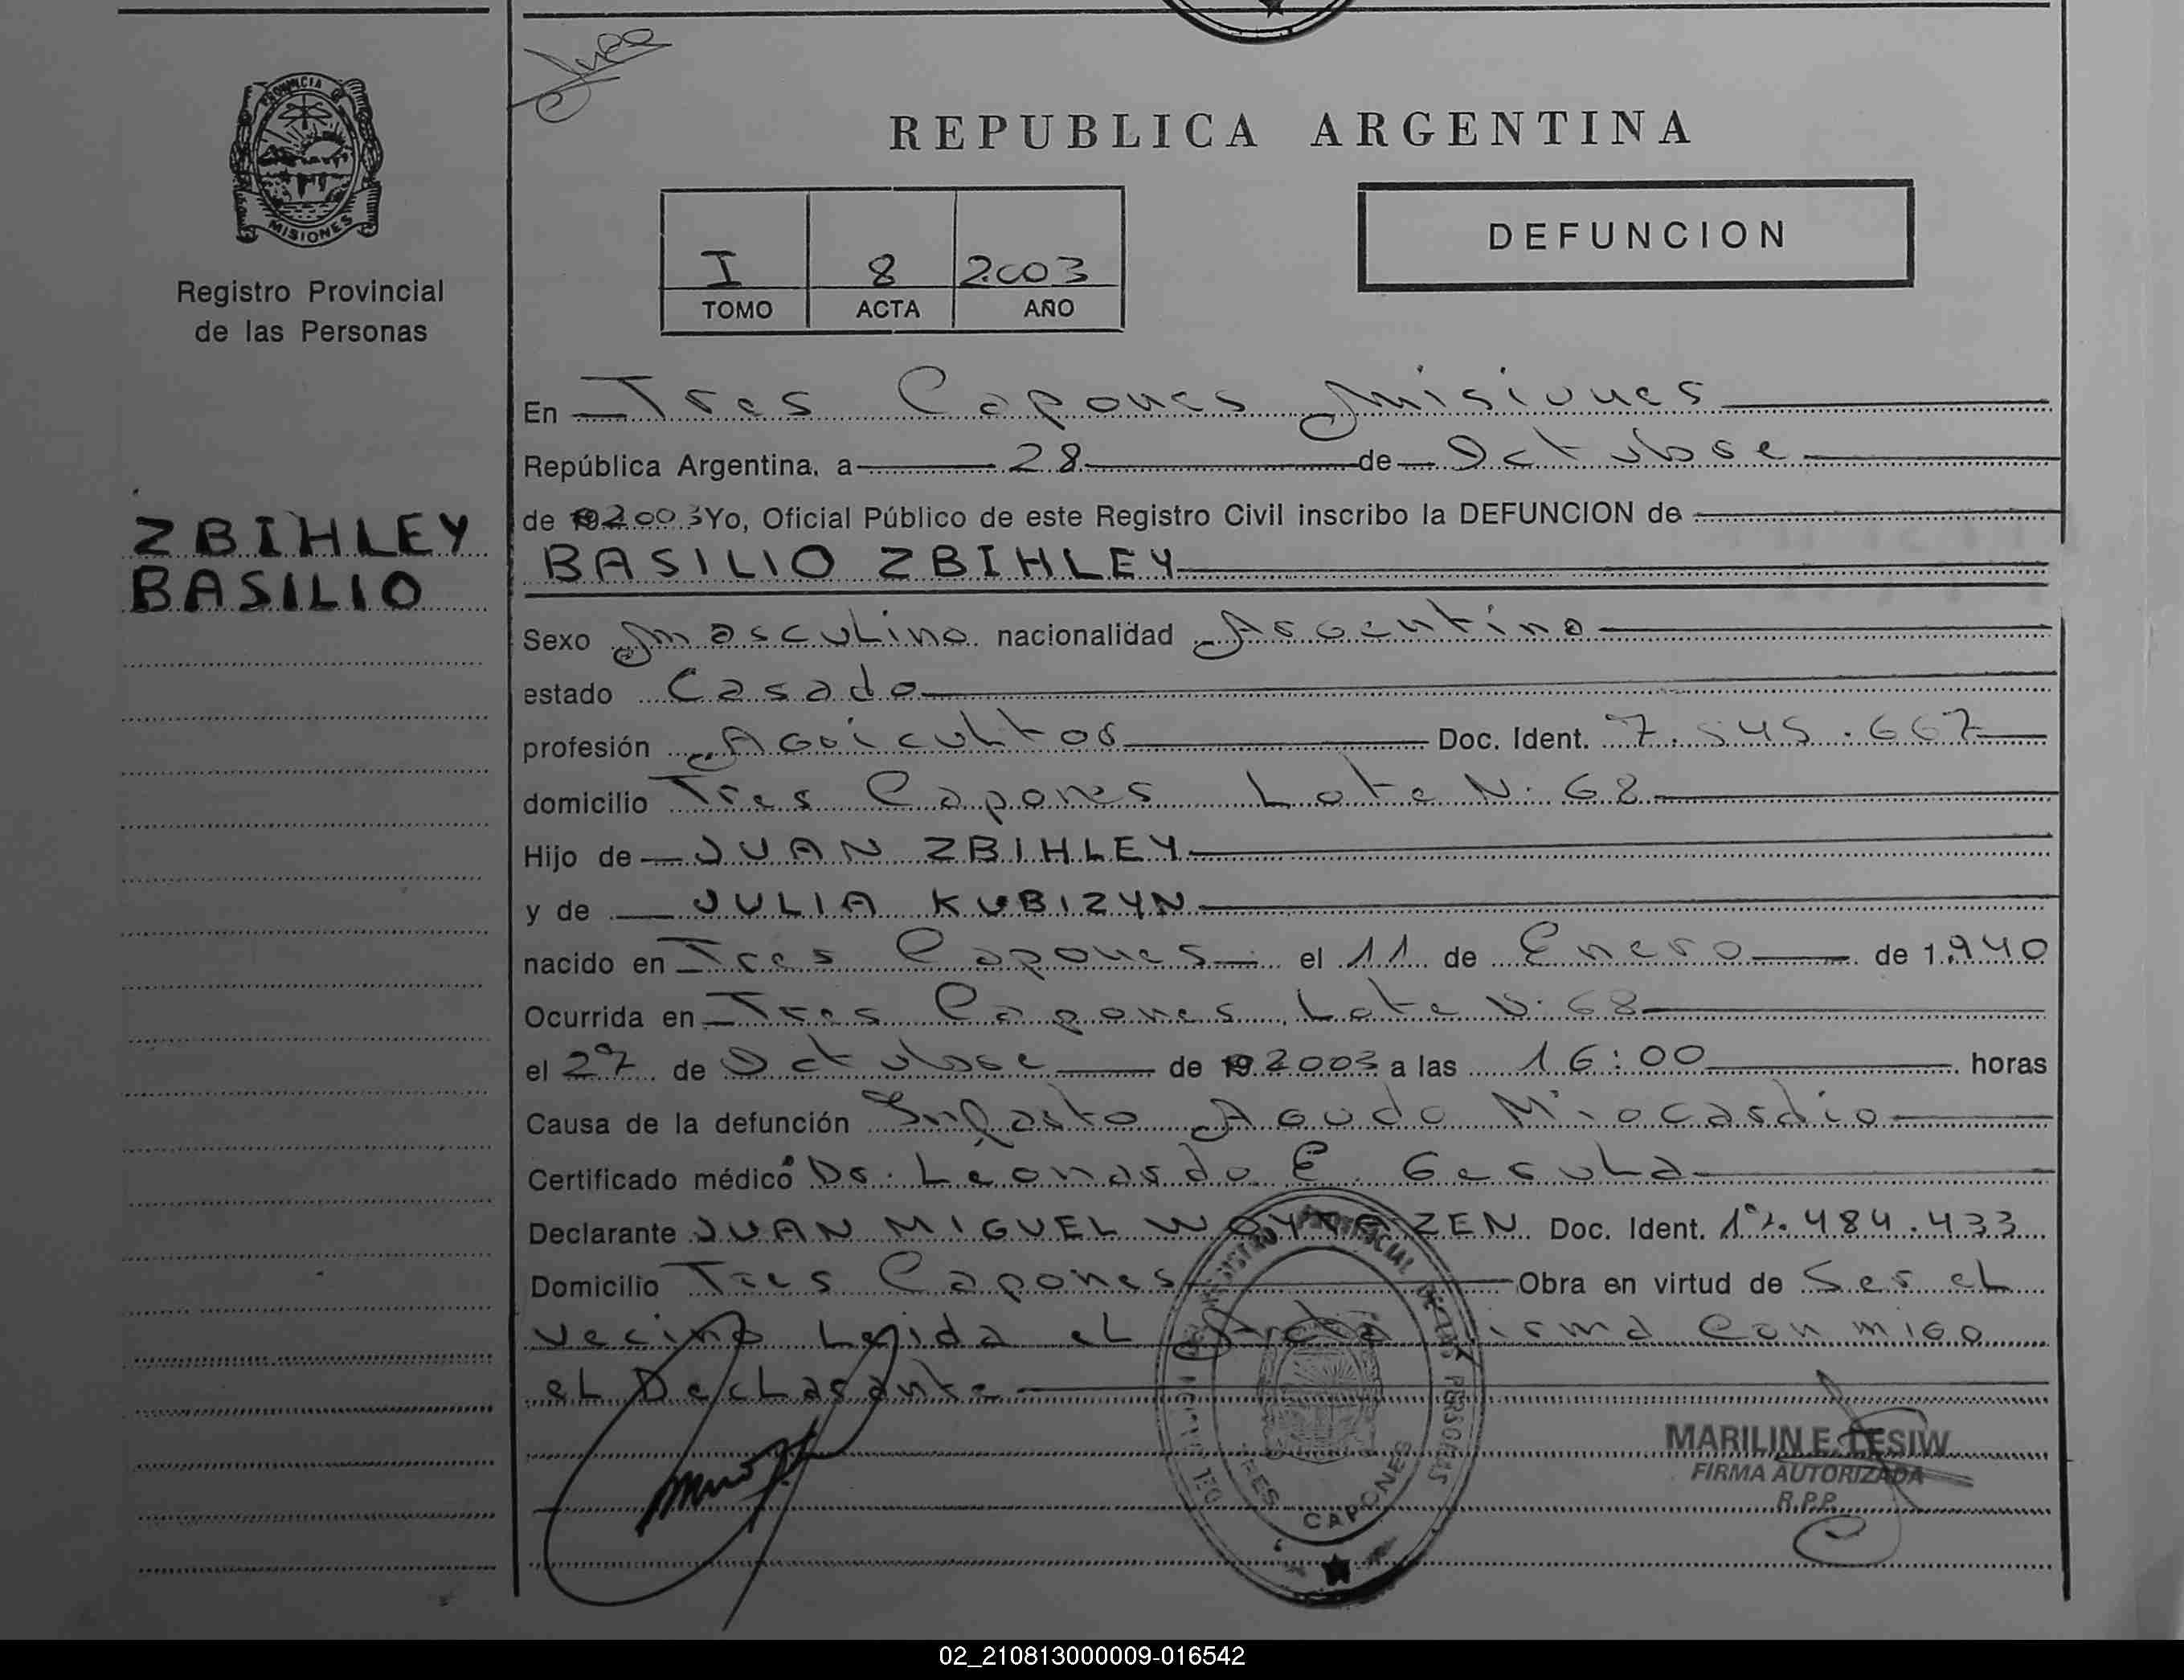 PROVINCIA DE
MISIONES
Registro Provincial
de las Personas
ZBIHLEY
BASILIO
REPUBLICA ARGENTINA
I 8 2003
TOMO ACTA AÑO
DEFUNCION
En Tres Capones Misiones
República Argentina, a 28 de Octubre
de 192003 Yo, Oficial Público de este Registro Civil inscribo la DEFUNCION de
BASILIO ZBIHLEY
Sexo Masculino nacionalidad Argentino
estado Casado
profesión Agricultor Doc. Ident. 7.545.667
domicilio Tres Capones Lote N. 68
Hijo de JUAN ZBIHLEY
y de JULIA KUBIZYN
nacido en Tres Capones el 11 de Enero de 1.940
Ocurrida en Tres Capones Lote N. 68
el 27 de Octubre de 192003 a las 16:00 horas
Causa de la defunción Infarto Agudo Miocardio
Certificado médico Dr. Leonardo E.
Declarante JUAN MIGUEL Doc. Ident. 17.484.433
Domicilio Tres Capones Obra en virtud de Ser el
vecino Leida el Acta firma Conmigo
el Declarante
REGISTRO PROVINCIAL DE LAS PERSONAS
TRES CAPONES
MARILIN E. LESIW
FIRMA AUTORIZADA
R.P.P.
02_210813000009-016542